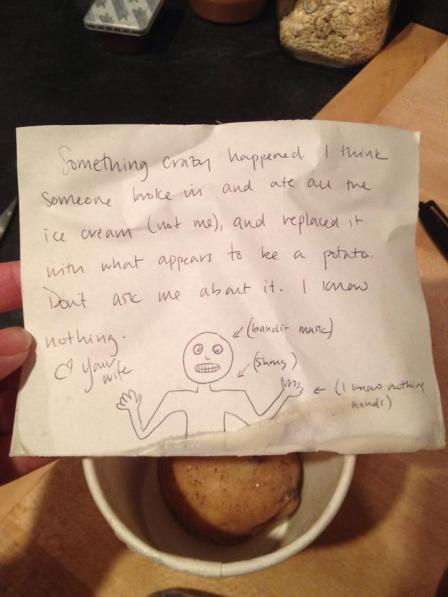 Something crazy happened I think
someone broke in and ate all the
ice cream (not me), and replaced it
with what appears to be a potato.
Don't ask me about it. I know
nothing.
♡ Your
wife
(bandit mask)
(shrug)
(I know nothing
hands)